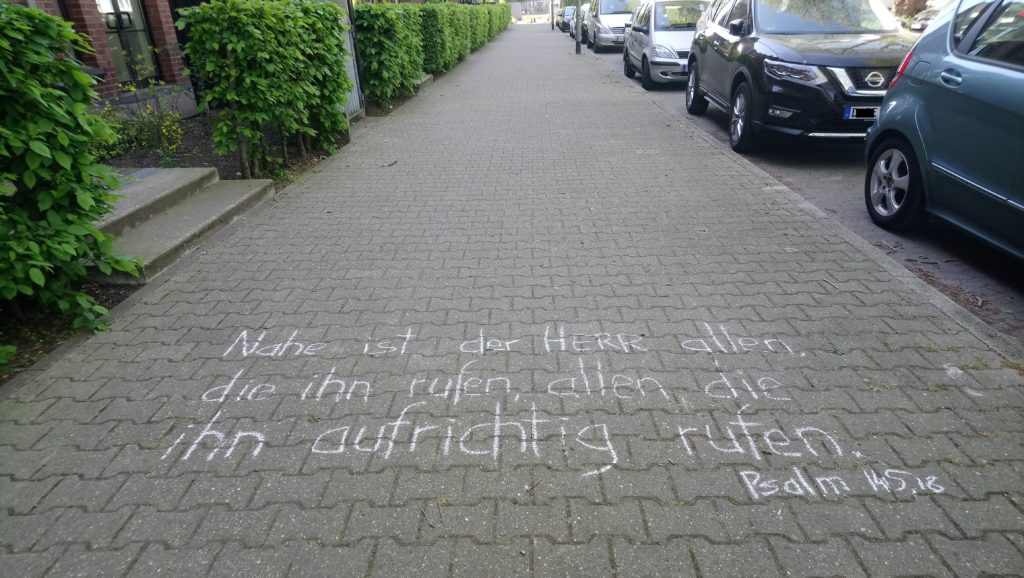 Nahe ist der HERR allen,
die ihn rufen, allen, die
ihn aufrichtig rufen.
Psalm 145,18